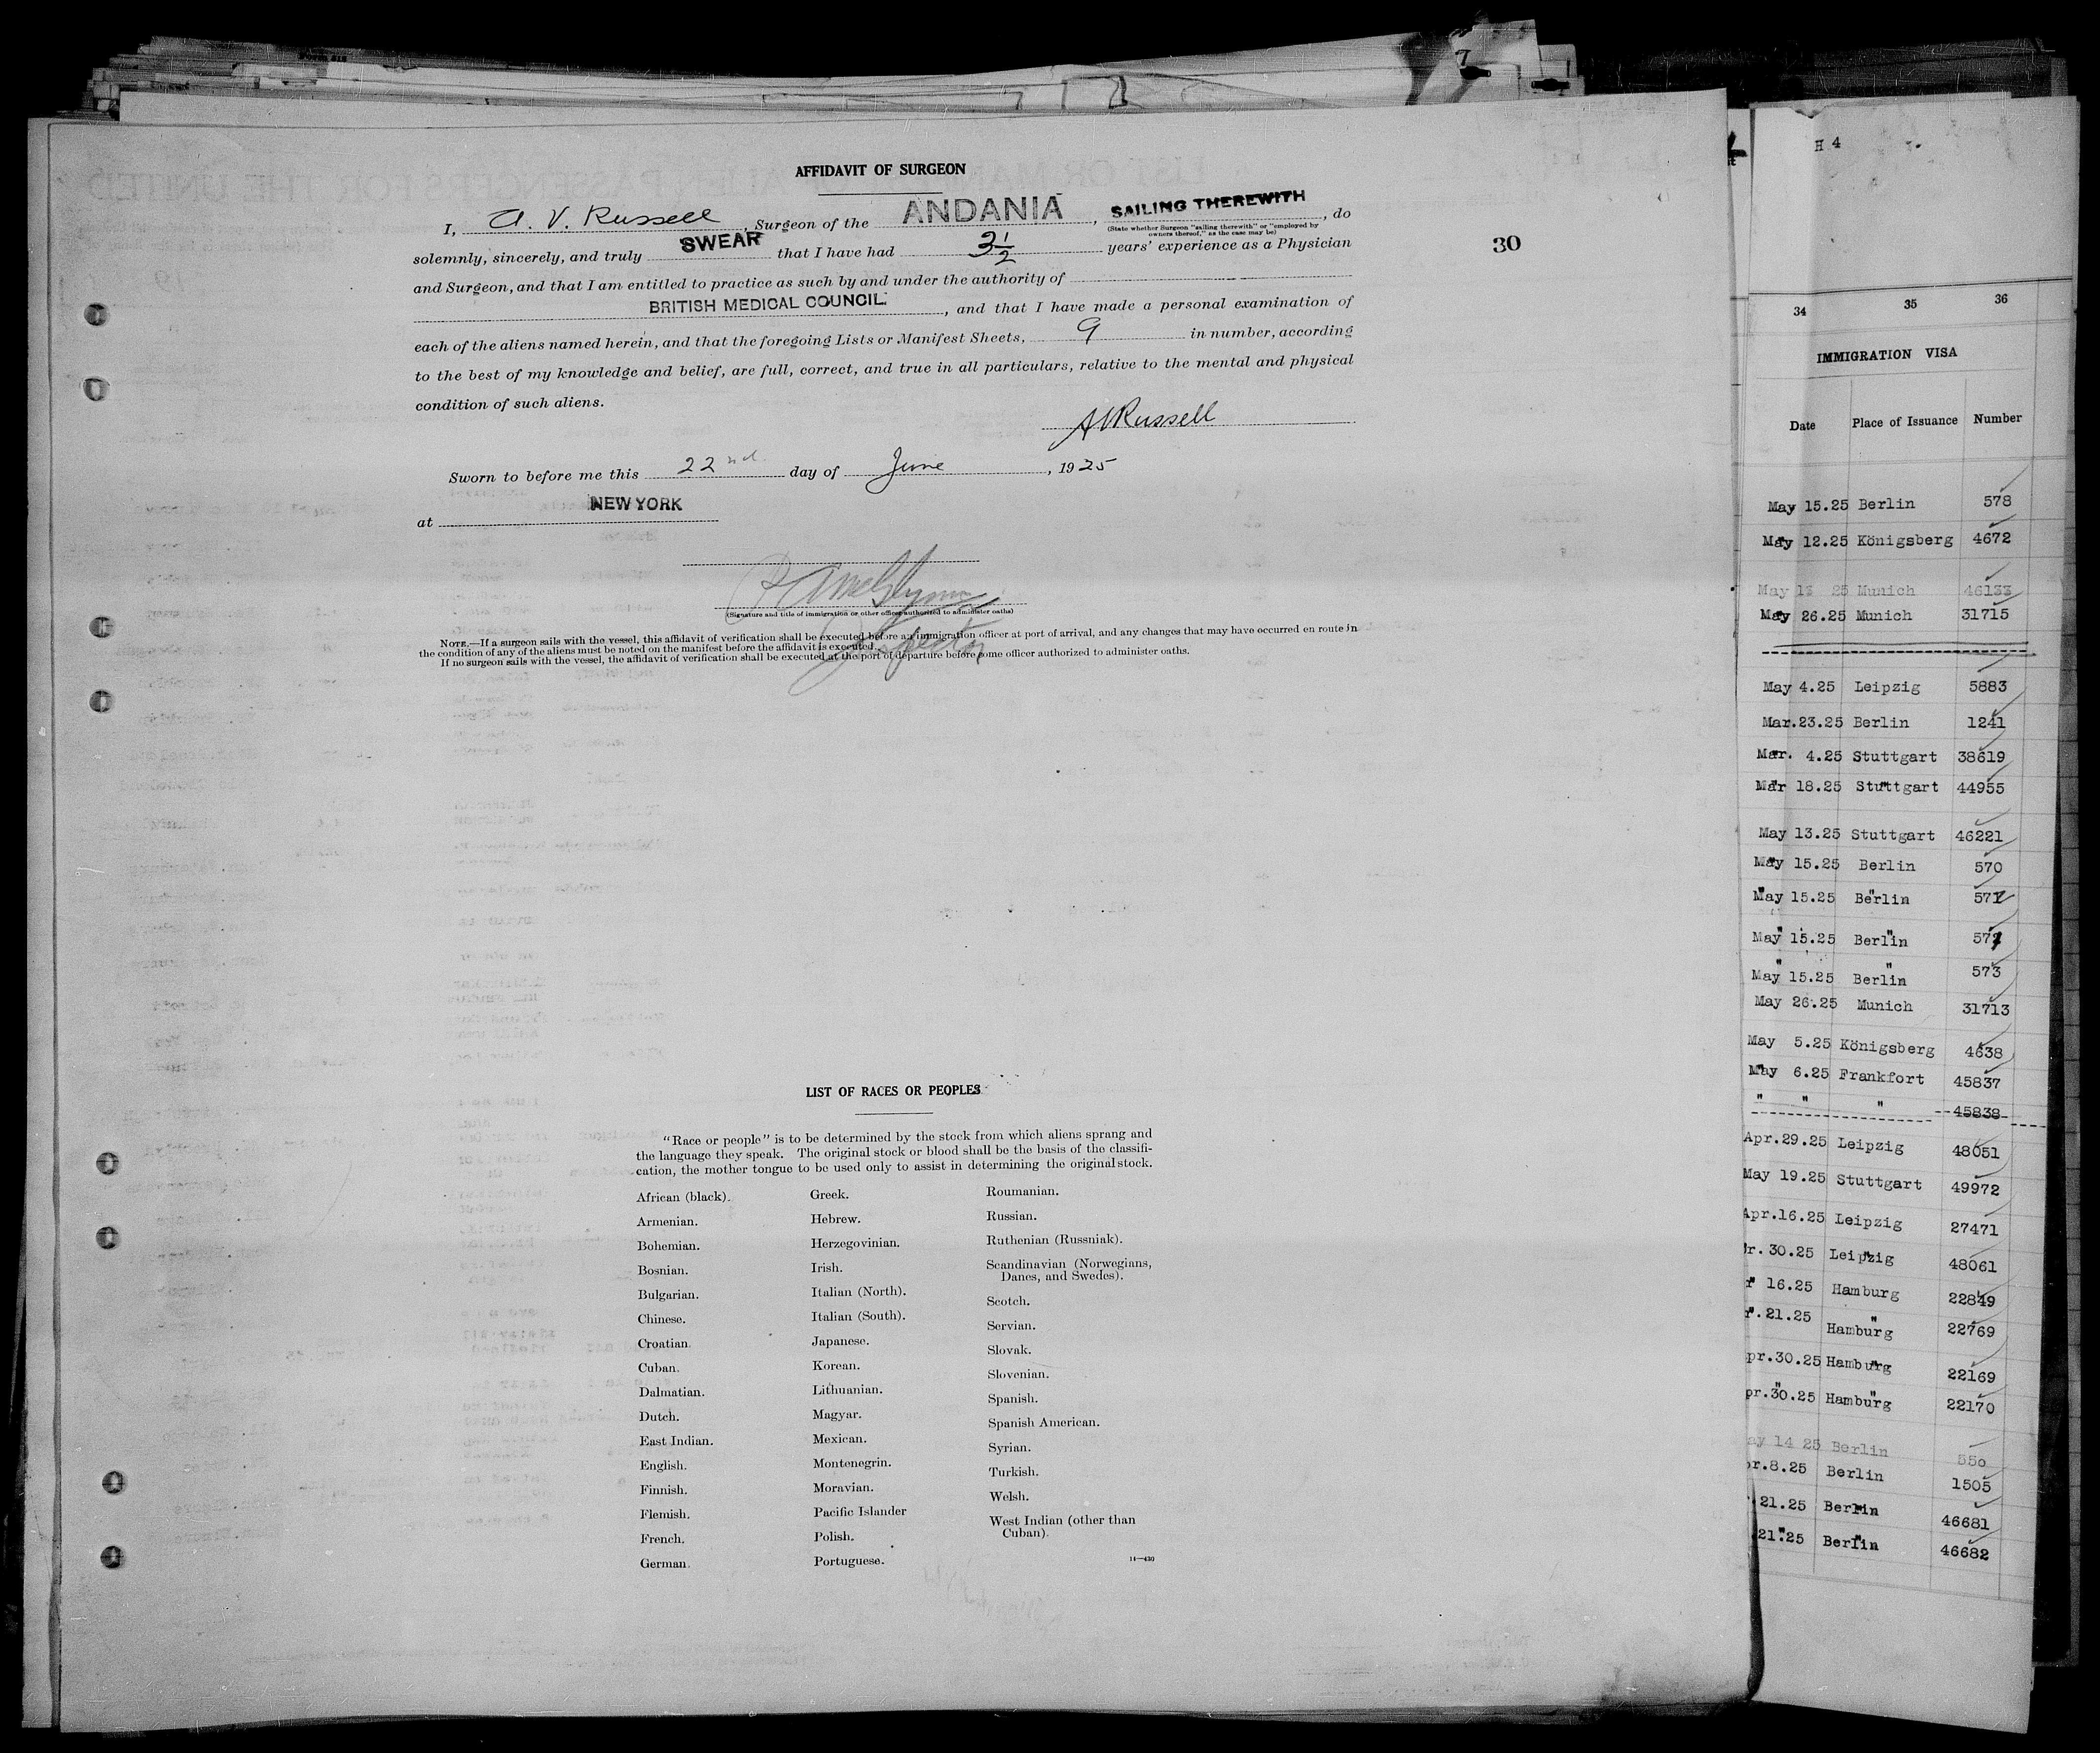 AFFIDAVIT OF SURGEON
I, A. V. Russell, Surgeon of the ANDANIA, SAILING THEREWITH, do
(State whether Surgeon "sailing therewith" or "employed by
owners thereof," as the case may be)
solemnly, sincerely, and truly SWEAR that I have had 3½ years' experience as a Physician
and Surgeon, and that I am entitled to practice as such by and under the authority of
BRITISH MEDICAL COUNCIL, and that I have made a personal examination of
each of the aliens named herein, and that the foregoing Lists or Manifest Sheets, 9 in number, according
to the best of my knowledge and belief, are full, correct, and true in all particulars, relative to the mental and physical
condition of such aliens.
AVRussell
Sworn to before me this 22nd day of June, 1925
at NEW YORK
Inspector
(Signature and title of immigration or other officer authorized to administer oaths)
NOTE.—If a surgeon sails with the vessel, this affidavit of verification shall be executed before an immigration officer at port of arrival, and any changes that may have occurred en route in
the condition of any of the aliens must be noted on the manifest before the affidavit is executed.
If no surgeon sails with the vessel, the affidavit of verification shall be executed at the port of departure before some officer authorized to administer oaths.
30
LIST OF RACES OR PEOPLES
"Race or people" is to be determined by the stock from which aliens sprang and
the language they speak. The original stock or blood shall be the basis of the classifi-
cation, the mother tongue to be used only to assist in determining the original stock.
African (black).
Armenian.
Bohemian.
Bosnian.
Bulgarian.
Chinese.
Croatian.
Cuban.
Dalmatian.
Dutch.
East Indian.
English.
Finnish.
Flemish.
French.
German.
Greek.
Hebrew.
Herzegovinian.
Irish.
Italian (North).
Italian (South).
Japanese.
Korean.
Lithuanian.
Magyar.
Mexican.
Montenegrin.
Moravian.
Pacific Islander
Polish.
Portuguese.
Roumanian.
Russian.
Ruthenian (Russniak).
Scandinavian (Norwegians,
Danes, and Swedes).
Scotch.
Servian.
Slovak.
Slovenian.
Spanish.
Spanish American.
Syrian.
Turkish.
Welsh.
West Indian (other than
Cuban).
14—430
H 4
34 35 36
IMMIGRATION VISA
Date Place of Issuance Number
May 15.25 Berlin 578
May 12.25 Königsberg 4672
May 25 Munich
May 26.25 Munich 31715
May 4.25 Leipzig 5883
Mar.23.25 Berlin 1241
Mar. 4.25 Stuttgart 38619
Mar 18.25 Stuttgart 44955
May 13.25 Stuttgart 46221
May 15.25 Berlin 570
May 15.25 Berlin 572
May 15.25 Berlin 571
May 15.25 Berlin 573
May 26.25 Munich 31713
May 5.25 Königsberg 4638
May 6.25 Frankfort 45837
" " " 45838
Apr.29.25 Leipzig 48051
May 19.25 Stuttgart 49972
Apr.16.25 Leipzig 27471
r.30.25 Leipzig 48061
16.25 Hamburg 22849
21.25 Hamburg 22769
pr.30.25 Hamburg 22169
pr.30.25 Hamburg 22170
ay 14 25 Berlin 550
pr.8.25 Berlin 1505
21.25 Berlin 46681
21.25 Berlin 46682